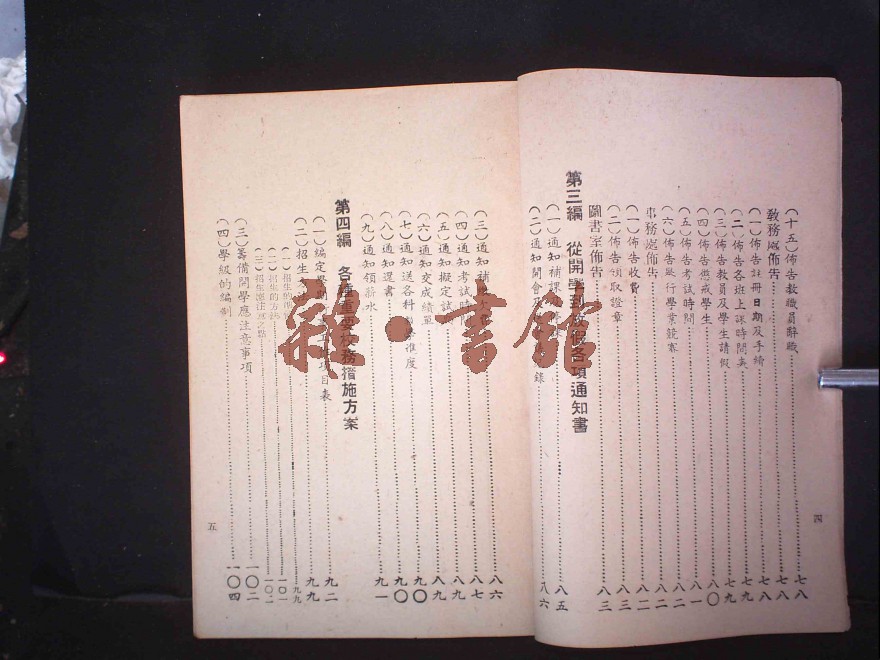 (十五)佈告教職員辭職……七八
教務處佈告……七八
(一)佈告註冊日期及手續……七八
(二)佈告各班上課時間表……七九
(三)佈告教員及學生請假……七九
(四)佈告懲戒學生……八〇
(五)佈告考試時間……八一
(六)佈告舉行學業競賽……八二
事務處佈告……八二
(一)佈告收費……八二
(二)佈告領取證章……八三
圖書室佈告……八三
第三編 從開學到放假各項通知書
(一)通知補課……八五
(二)通知開會及……錄……八六
四
(三)通知補……八六
(四)通知考試時間……八七
(五)通知擬定試……八九
(六)通知交成績單……八九
(七)通知送各科……進度……九〇
(八)通知還書……九〇
(九)通知領薪水……九一
第四編 各種重要校務措施方案
(一)編定學期……項目表……九二
(二)招生……九九
(一)招生的……九九
(二)招生的方法……一〇一
(三)招生應注意之點……一〇二
(三)籌備開學應注意事項……一〇二
(四)學級的編制……一〇四
五
書館